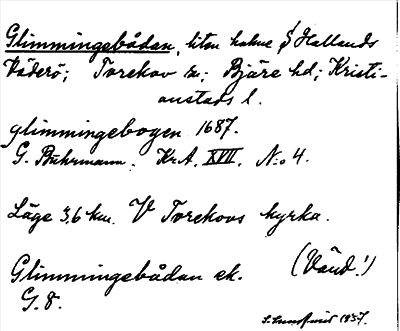 Glimmingebådan, liten holme på Hallands
Väderö; Torekov sn; Bjäre hd; Kristi-
anstads l.
glimmingebogen 1687.
G. Buhrmann. Kr.A. XVII. No 4.
Läge 3,6 km. V Torekovs kyrka.
(Vänd!)
Glimmingebådan ek.
G. 8.
1937.